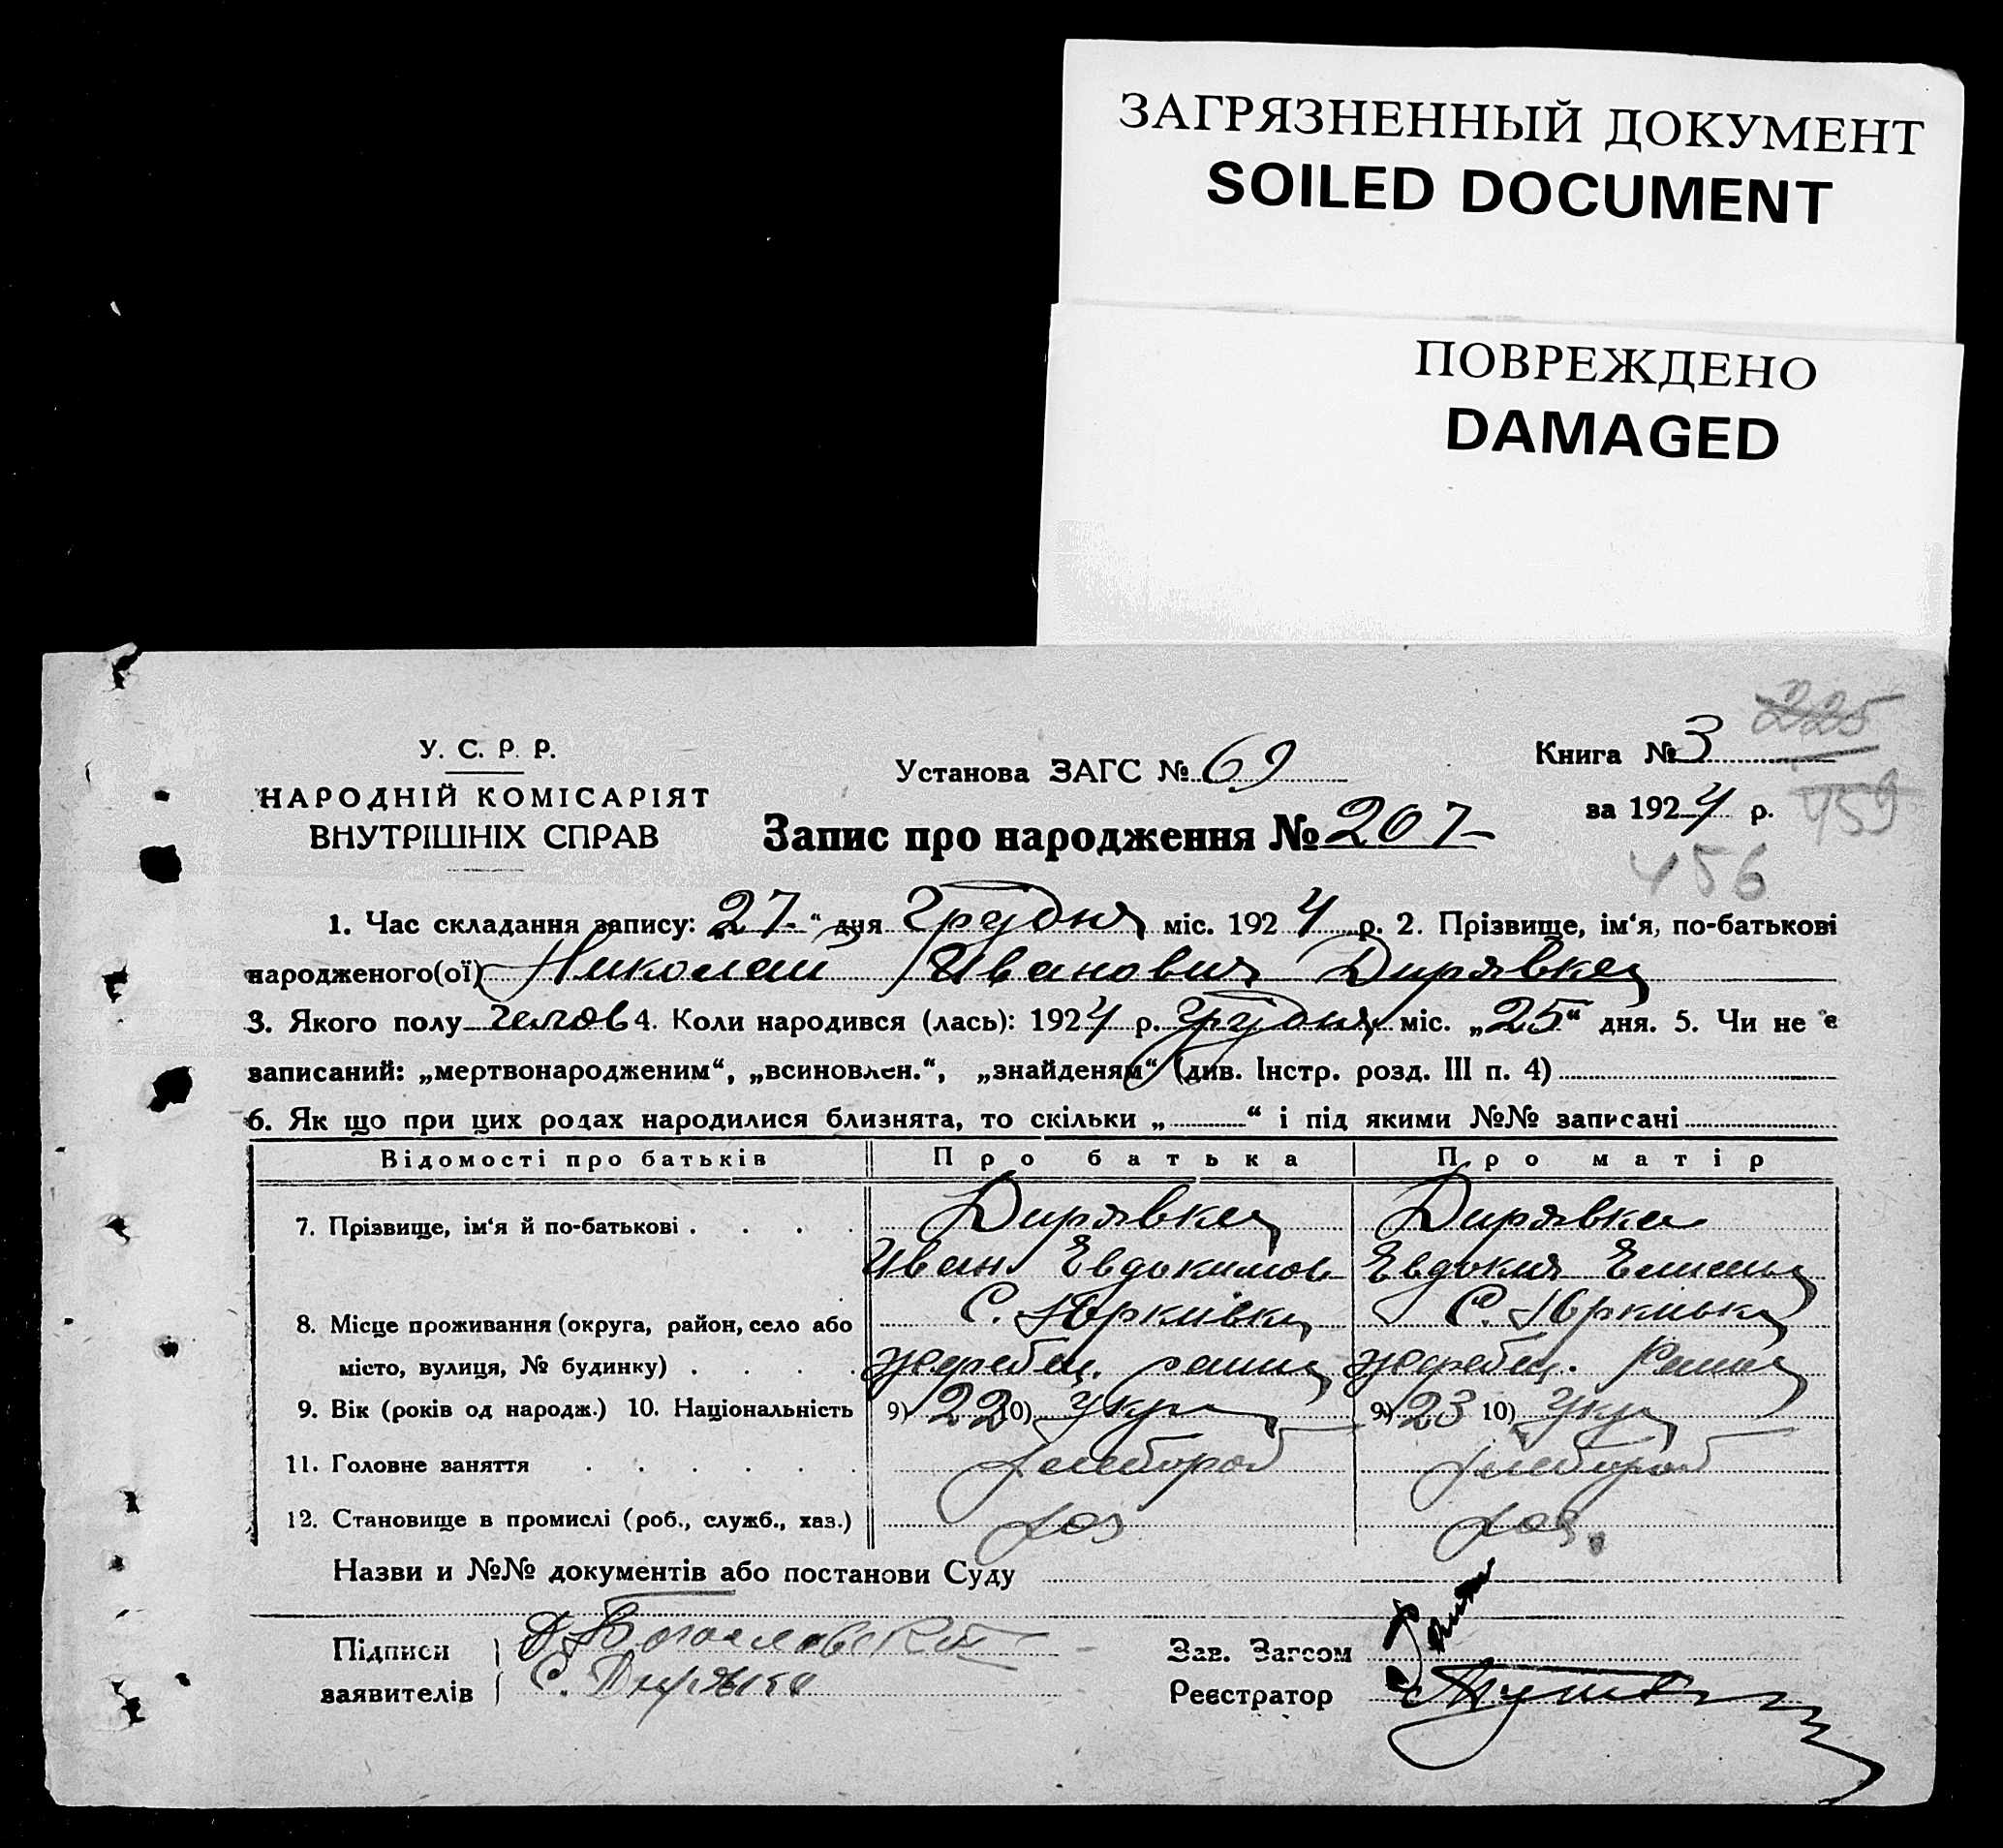 ЗАГРЯЗНЕННЫЙ ДОКУМЕНТ
SOILED DOCUMENT
ПОВРЕЖДЕНО
DAMAGED
225
У. С. Р. Р.
НАРОДНІЙ КОМІСАРІЯТ
ВНУТРІШНІХ СПРАВ
Установа ЗАГС № 69
Книга № 3
за 1924 р. 459
Запис про народження № 207
456
1. Час складання запису: „27“ дня Грудня міс. 1924 р. 2. Прізвище, ім‘я, по-батькові
народженого(ої) Николай Иванович Дирявка
3. Якого полу челов 4. Коли народився (лась): 1924 р. Грудня міс. „25“ дня. 5. Чи не є
записаний: „мертвонародженим“, „всиновлен.“, „знайденям“ (див. Інстр. розд. III п. 4)
6. Як що при цих родах народилися близнята, то скільки „ “ і під якими №№ записані
Відомості про батьків Про батька Про матір
7. Прізвище, ім‘я й по-батькові Дирявка Дирявка
Иван Евдокимов Евдокия
8. Місце проживання (округа, район, село або С. Юрківка С. Юрківка
місто, вулиця, № будинку) Жеребец. Жеребец.
9. Вік (років од народж.) 10. Національність 9) 22 10) Укр 9) 23 10) Укр
11. Головне заняття Хлебороб Хлебороб
12. Становище в промислі (роб., служб., хаз.) хоз хоз.
Назви и №№ документів або постанови Суду
Підписи Богословский Зав. Загсом
заявителів С. Дирявка Реєстратор